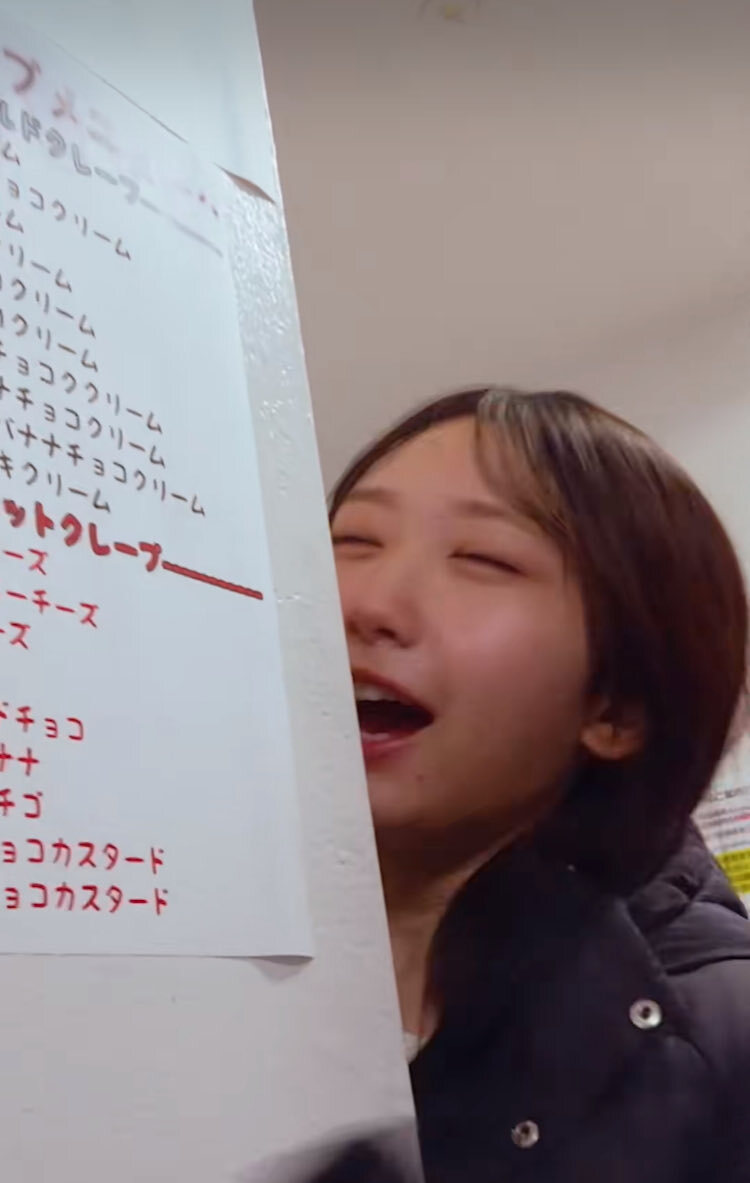 プメニュー
ルドクレープ
ム
ョコクリーム
ーム
リーム
クリーム
クリーム
チョコククリーム
ナチョコクリーム
バナナチョコクリーム
キクリーム
ットクレープ
ーズ
ーチーズ
ーズ
チョコ
ナナ
チゴ
ョコカスタード
ョコカスタード